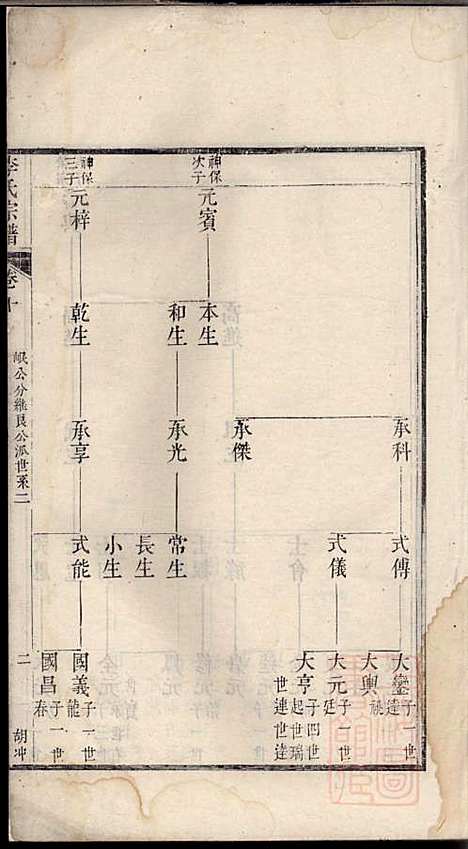 承科
式傳
大鑾 子一世達
大興 祧
式儀
大元 子一世廷
大亨 子四世瑞世起世連世達
承傑
神保次子
元賓
本生
和生
承光
常生
長生
小生
神保三子
元梓
乾生
承享
式能
國義 子一世龍
國昌 子一世春
李氏宗譜
卷十
岷公分維艮公派世系二
二
胡坤